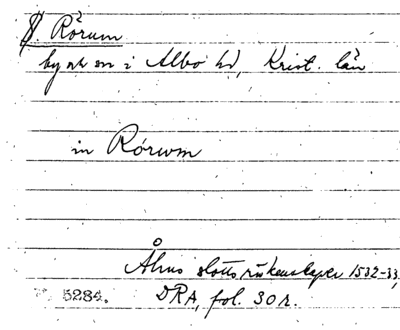 S. Rörum
by o sn i Albo hd, Krist. län
in Rórwm
Åhus slotts räkenskaper 1532-33,
5284. DRA, fol. 30 r.